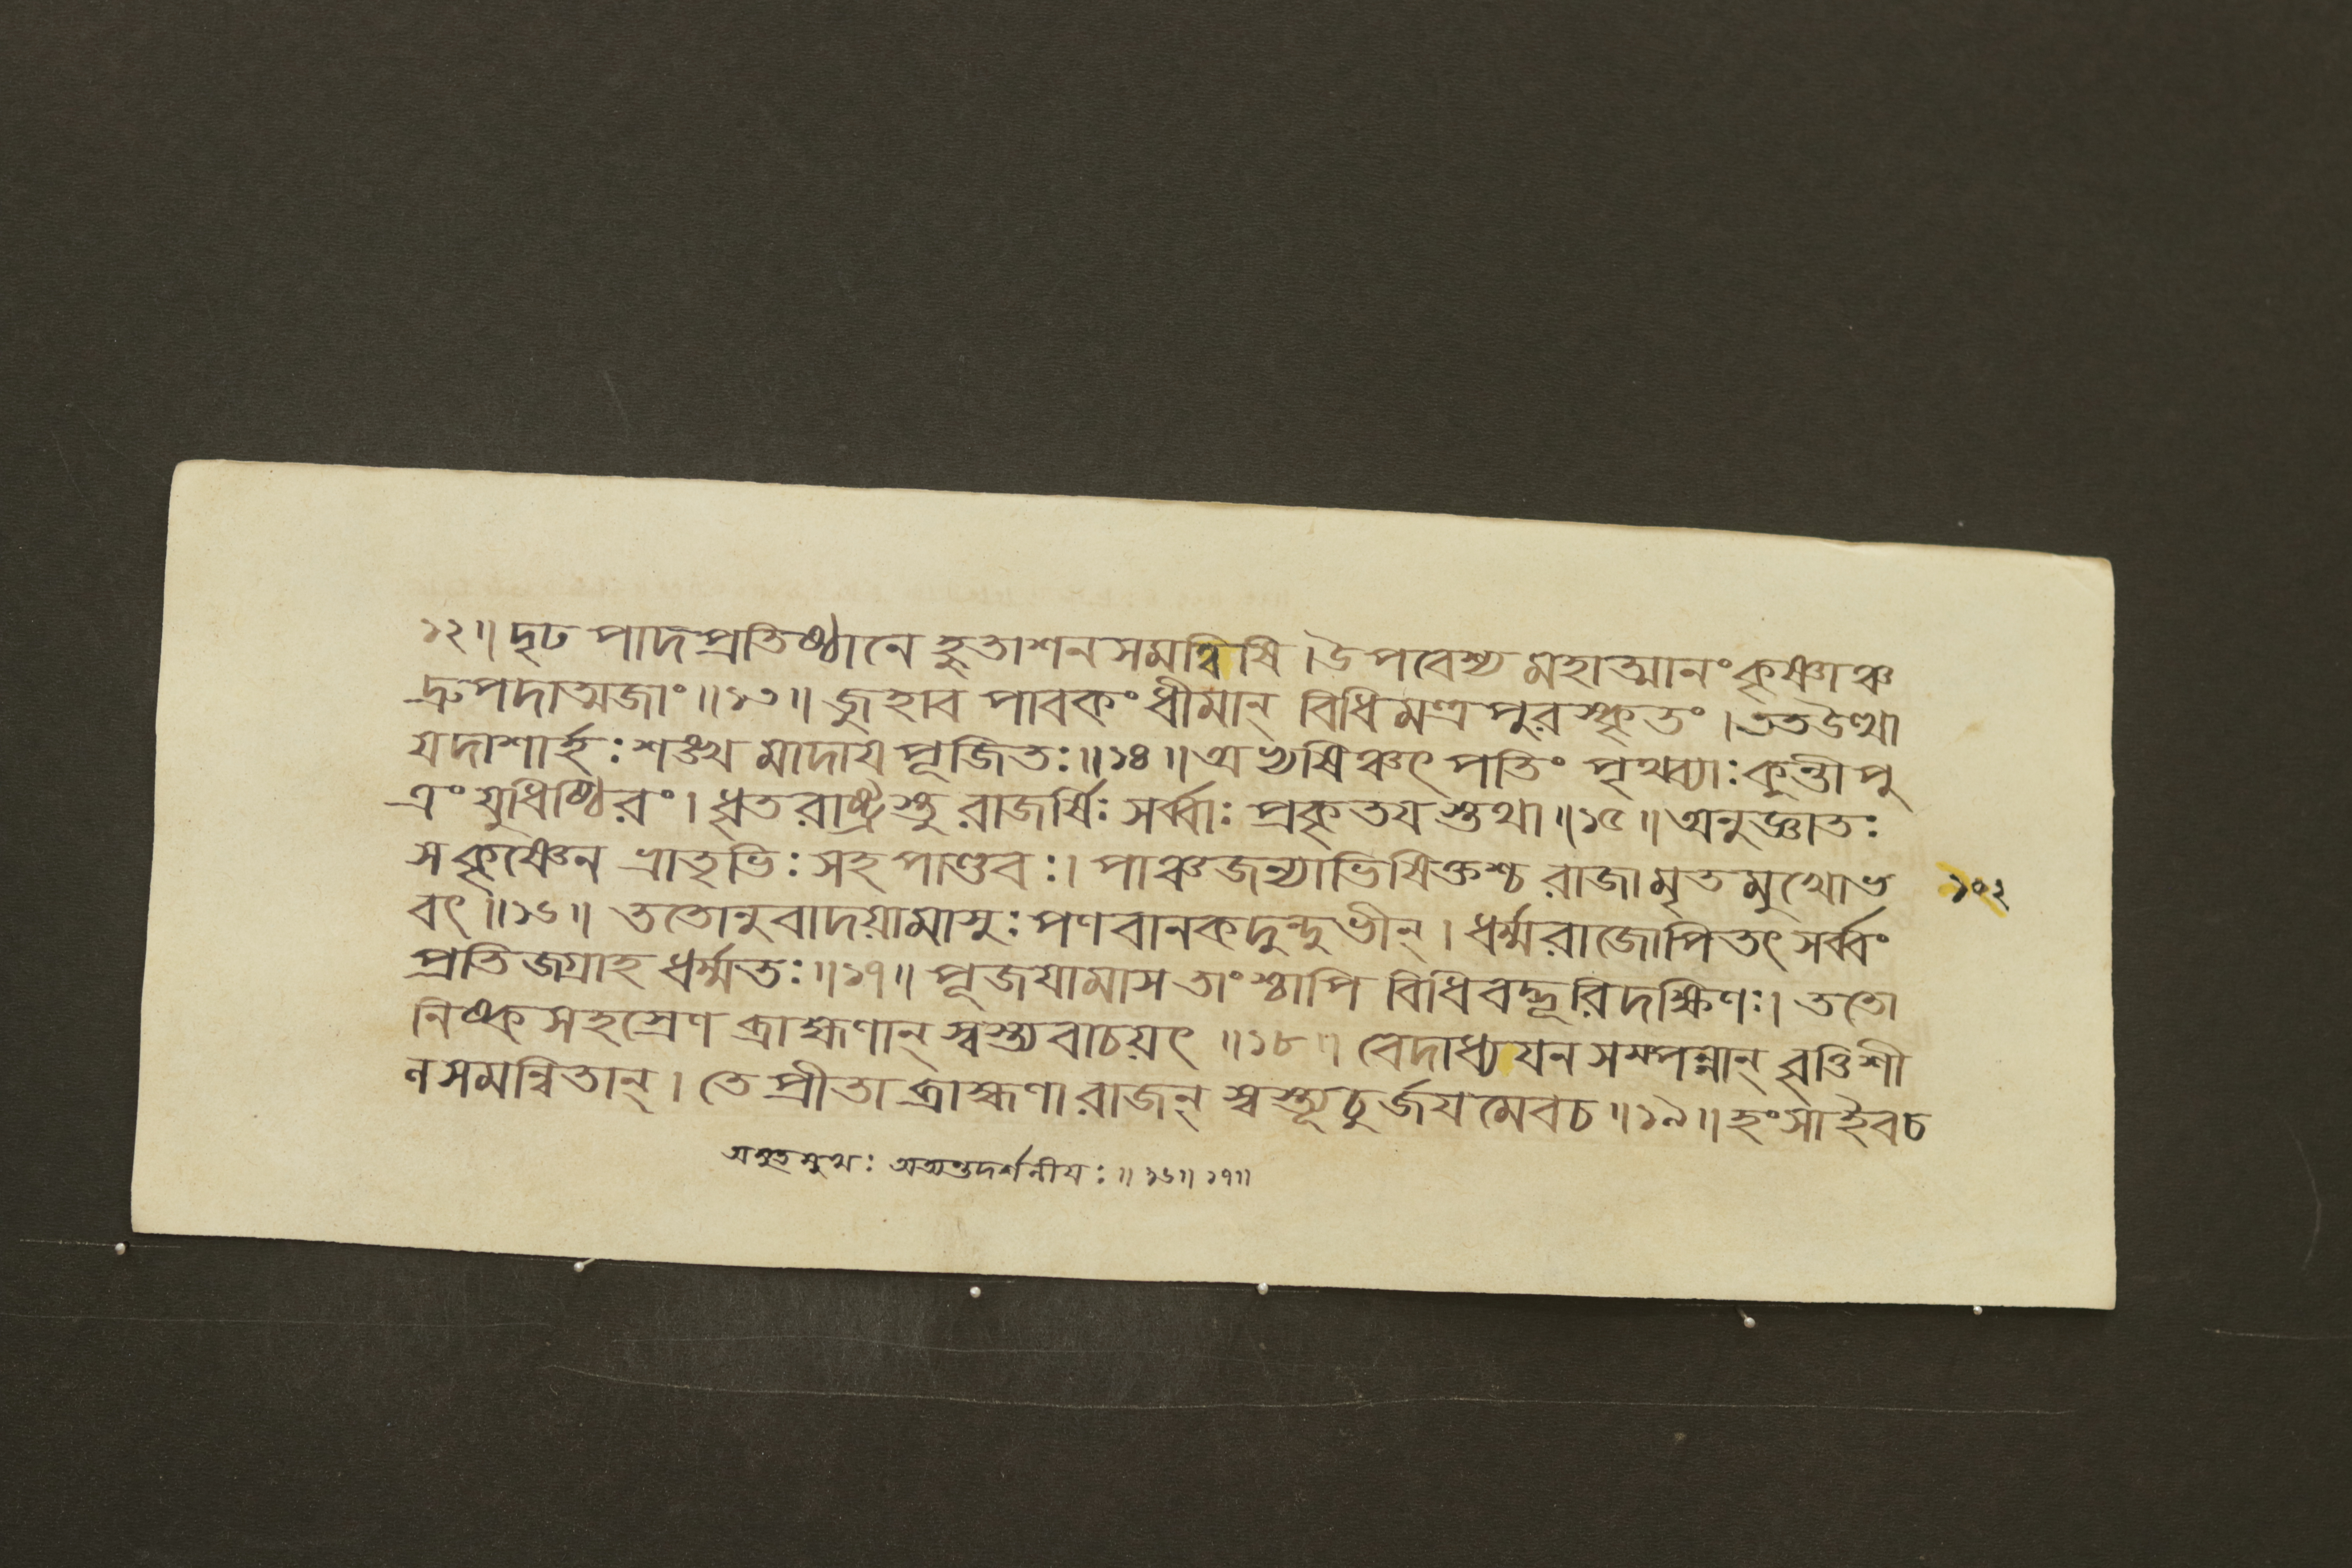 ১২॥ দৃঢ পাদপ্রতিষ্ঠানে হুতাশনসমন্বিষি । উপবেশ্য মহাত্মানং কৃষ্ণাঞ্চ
দ্রুপদাত্মজাং ॥১৩॥ জুহাব পাবকং ধীমান্ বিধিমন্ত্রপুরস্কৃতং । তত উত্থা
যদাশার্হঃ শঙ্খ মাদায পূজিতঃ ॥১৪॥ অভ্যষিঞ্চৎ পতিং পৃথ্ব্যাঃ কুন্তীপু
ত্রং যুধিষ্ঠিরং । ধৃতরাষ্ট্রস্তু রাজর্ষিঃ সর্ব্বাঃ প্রকৃতযস্তথা ॥১৫॥ অনুজ্ঞাতঃ
সকৃষ্ণেন ভ্রাতৃভিঃ সহ পাণ্ডবঃ । পাঞ্চজন্যাভিষিক্তশ্চ রাজামৃতমুখোভ
১০২
বৎ ॥১৬॥ ততোনুবাদয়ামাসুঃ পণবানকদুন্দুভীন্ । ধর্ম্মরাজোপিতৎ সর্ব্বং
প্রতিজগ্রাহ ধর্ম্মতঃ ॥১৭॥ পূজযামাস তাংশ্চাপি বিধিবদ্ভূরিদক্ষিণঃ । ততো
নিষ্ক সহস্রেণ ব্রাহ্মণান্ স্বস্ত্যবাচয়ৎ ॥১৮॥ বেদাধ্যযন সম্পন্নান্ ধৃতিশী
ল সমন্বিতান্ । তে প্রীতা ব্রাহ্মণা রাজন্ স্বস্ত্যূচুর্জযমেবচ ॥১৯॥ হংসাইবচ
অমৃতমুখঃ অত্যন্তদর্শনীযঃ ॥১৬॥১৭॥